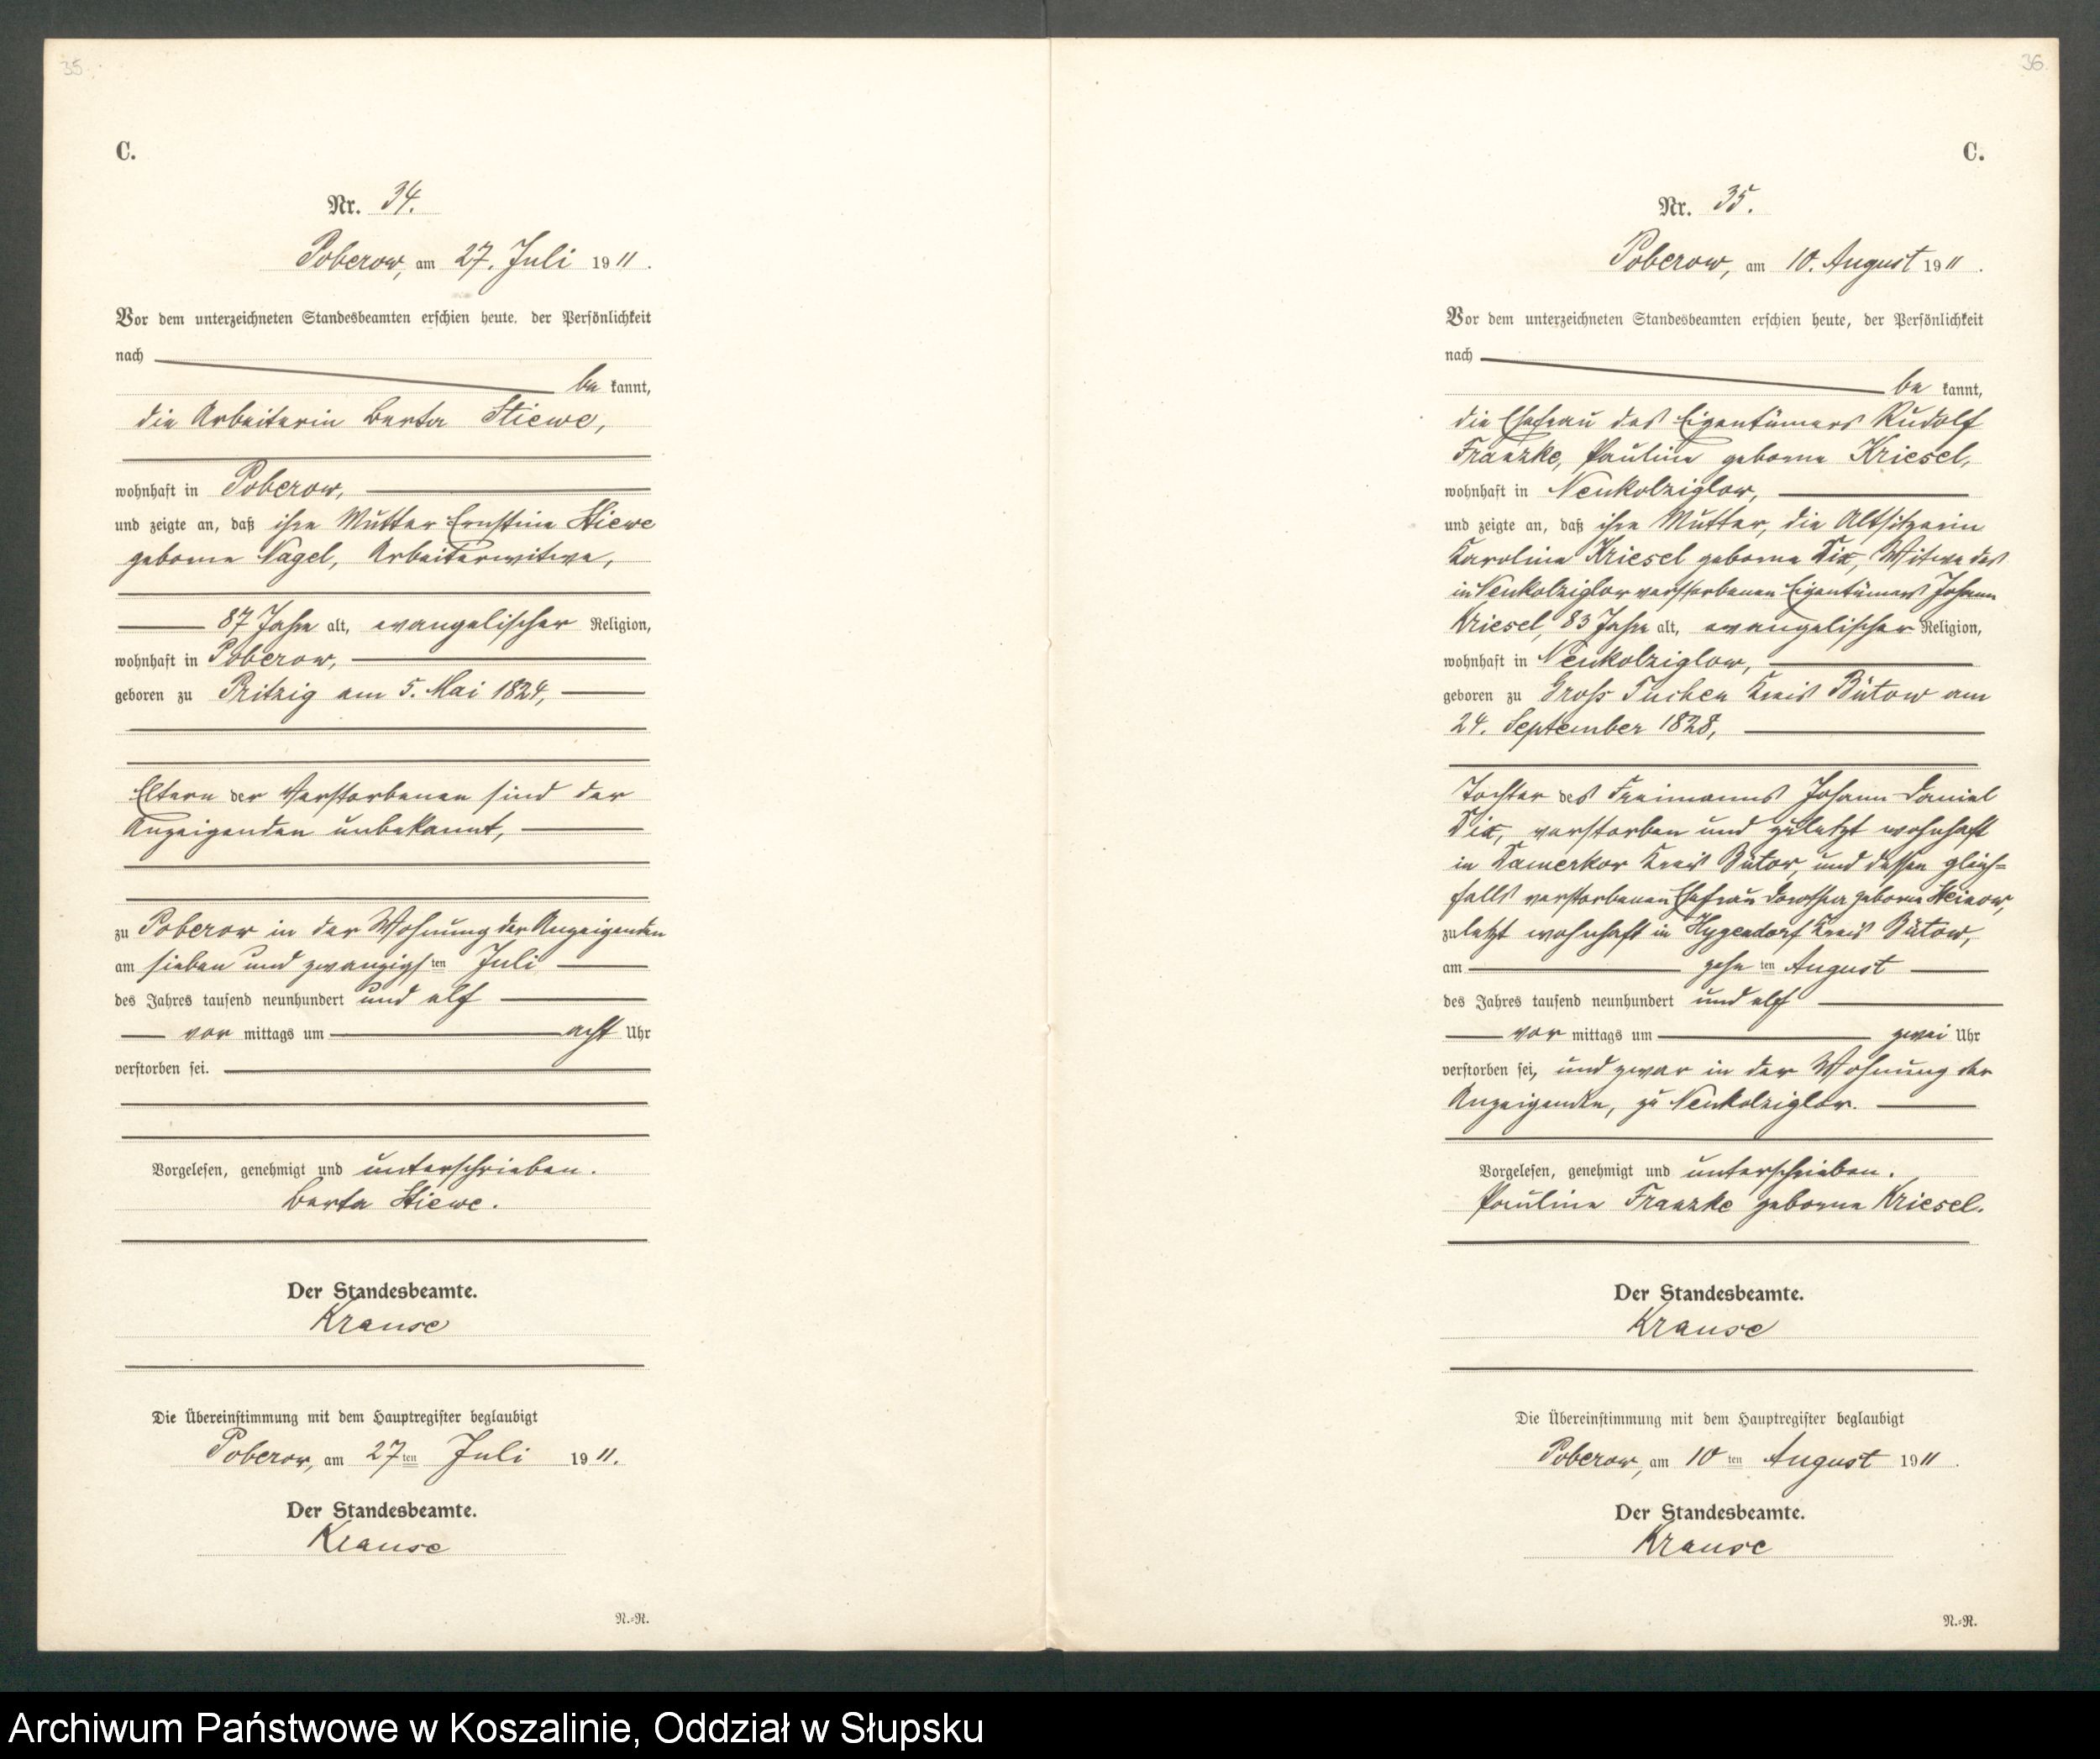 35.
C.
Nr. 34.
Poberow, am 27. Juli 1911.
Vor dem unterzeichneten Standesbeamten erschien heute, der Persönlichkeit
nach
be kannt,
die Arbeiterin Berta Stiewe,
wohnhaft in Poberow,
und zeigte an, daß ihre Mutter Ernstine Stiewe
geborne Nagel, Arbeiterwitwe,
87 Jahre alt, evangelischer Religion,
wohnhaft in Poberow,
geboren zu Pritzig am 5. Mai 1824,
Eltern der Verstorbenen sind der
Anzeigenden unbekannt,
zu Poberow in der Wohnung der Anzeigenden
am sieben und zwanzigsten Juli
des Jahres tausend neunhundert und elf
vor mittags um acht Uhr
verstorben sei.
Vorgelesen, genehmigt und unterschrieben.
Berta Stiewe.
Der Standesbeamte.
Krause
Die Übereinstimmung mit dem Hauptregister beglaubigt
Poberow, am 27ten Juli 1911.
Der Standesbeamte.
Krause
N.-R.
36.
C.
Nr. 35.
Poberow, am 10. August 1911.
Vor dem unterzeichneten Standesbeamten erschien heute, der Persönlichkeit
nach
be kannt,
die Ehefrau des Eigentümers Rudolf
Franzke, Pauline geborne Kriesel,
wohnhaft in Neukolziglow,
und zeigte an, daß ihre Mutter, die Altsitzerin
Karoline Kriesel geborne Dix, Witwe des
in Neukolziglow verstorbenen Eigentümers Johann
Kriesel, 83 Jahre alt, evangelischer Religion,
wohnhaft in Neukolziglow,
geboren zu Gross Tuchen Kreis Bütow am
24. September 1828,
Tochter des Freimanns Johann Daniel
Dix, verstorben und zuletzt wohnhaft
in Kamerkow Kreis Bütow, und dessen gleich=
falls verstorbenen Ehefrau Dorothea geborne
zuletzt wohnhaft in Hygendorf Kreis Bütow,
am zehnten August
des Jahres tausend neunhundert und elf
vor mittags um zwei Uhr
verstorben sei, und zwar in der Wohnung der
Anzeigenden, zu Neukolziglow.
Vorgelesen, genehmigt und unterschrieben.
Pauline Franzke geborne Kriesel.
Der Standesbeamte.
Krause
Die Übereinstimmung mit dem Hauptregister beglaubigt
Poberow, am 10ten August 1911.
Der Standesbeamte.
Krause
N.-R.
Archiwum Państwowe w Koszalinie, Oddział w Słupsku